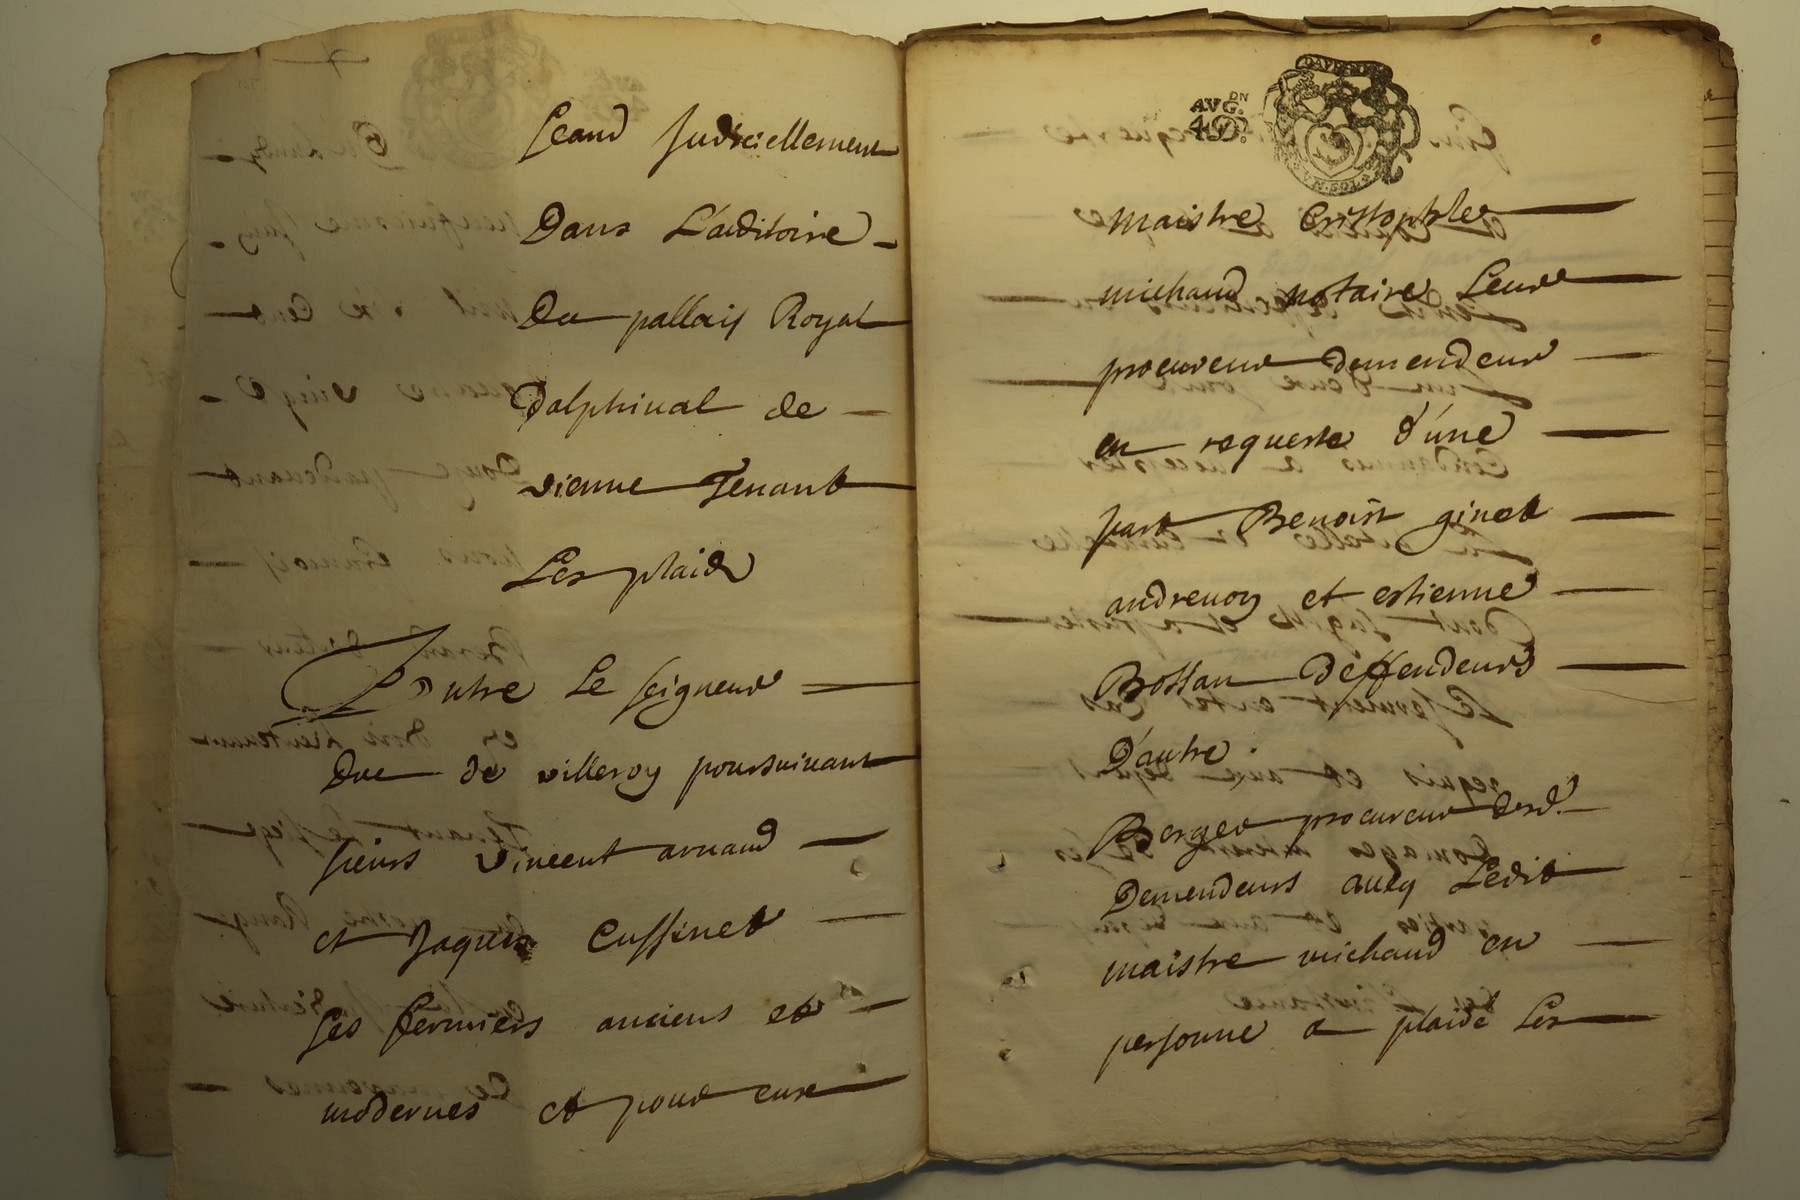 seand Judiciellement
Dans L'auditoire
Du pallais Royal
Dalphinal de
vienne Tenant
Les plaids
Entre Le seigneur
Duc de villeroy poursuivant
sieurs vincent arnaud
et Jaques Cussinet
ses fermiers anciens et
modernes et pour eux
AVG. DN
4 D.
maistre Cristophle
michaud notaire Leur
procureur demendeur
en requeste d'une
part Benoist ginet
andrevon et estienne
Bossan Deffendeurs
D'autre.
Berger procureur desd.
Demendeurs avecq Ledit
maistre michaud en
personne a plaidé Les